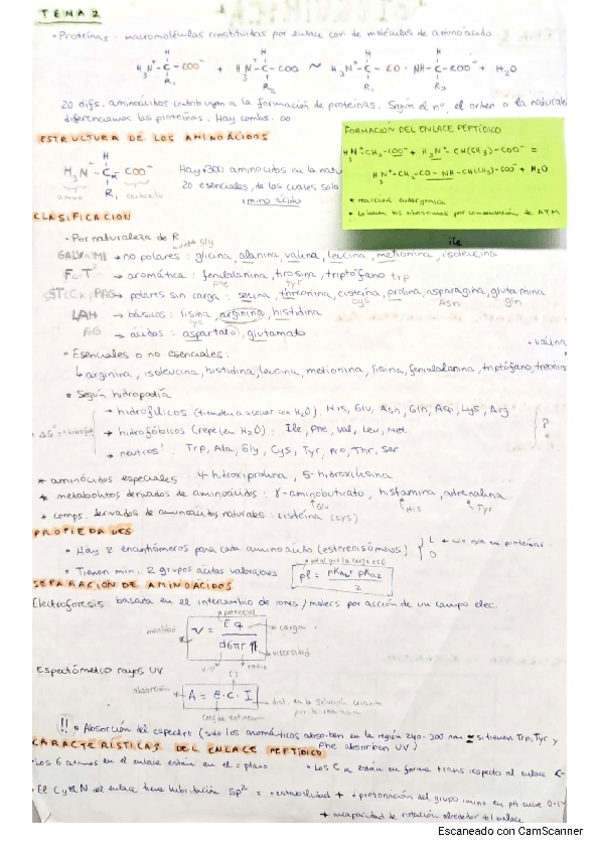 TEMA 2
• Proteínas: macromoléculas constituidas por enlace cov. de moléculas de aminoácido
H H H H
H₃N⁺-C-COO⁻ + H₃N⁺-C-COO ~ H₃N⁺-C-CO-NH-C-COO⁻ + H₂O
R₁ R₂ R₁ R₂
20 difs. aminoácidos contribuyen a la formación de proteínas. Según el nº, el orden o la
diferenciamos las proteínas. Hay combs. ∞
FORMACIÓN DEL ENLACE PEPTÍDICO
H₃N⁺CH₂-COO⁻ + H₃N⁺-CH(CH₃)-COO⁻ =
H₃N⁺-CH₂-CO-NH-CH(CH₃)-COO⁻ + H₂O
* reacción endergónica
ESTRUCTURA DE LOS AMINOÁCIDOS
H
H₃N⁺-Cα COO⁻
amino R₁ carboxilo
Hay +300 aminoácidos en la
20 esenciales, de los cuales solo
1 imino ácido
CLASIFICACION
• Por naturaleza de R
gly
ile
no polares: glicina, alanina, valina, leucina, metionina, isoleucina
aromática: fenilalanina, tirosina, triptófano trp
Phe tyr
polares sin carga: serina, treonina, cisteína, prolina, asparagina, glutamina
cys Asn gln
LAH → básicos: lisina, arginina, histidina
lys
→ ácidos: aspartato, glutamato
• Esenciales o no esenciales:
valina
↳ arginina, isoleucina, histidina, leucina, metionina, lisina, fenilalanina, triptófano, treonina
• Según hidropatía
→ hidrofílicos (tienden a asociar con H₂O): His, Glu, Asn, Gln, Asp, Lys, Arg
→ hidrofóbicos (repelen H₂O): Ile, Phe, Val, Leu, Met
→ neutros: Trp, Ala, Gly, Cys, Tyr, Pro, Thr, Ser
?
* aminoácidos especiales: 4-hidroxiprolina, 5-hidroxilisina
* metabolitos derivados de aminoácidos: γ-aminobutirato, histamina, adrenalina
↑Glu ↑His ↑Tyr
* comps. derivados de aminoácidos naturales: cisteína (cys)
PROPIEDADES
• Hay 2 enantiómeros para cada aminoácido (estereoisómeros) L
D
• Tienen mín. 2 grupos ácidos valorables
pI = pKa₁ + pKa₂
2
SEPARACIÓN DE AMINOÁCIDOS
Electroforesis: basada en el intercambio de iones por acción de un campo elec.
potencial
movilidad
v = E q
d6πrη
carga
viscosidad
dist radio
Espectómetro rayos UV
absorción
A = E·C·I
!! • Absorción del espectro (solo los aromáticos absorben en la región 240-300 nm = si tienen Trp, Tyr y
Phe absorben UV)
CARACTERÍSTICAS DEL ENLACE PEPTÍDICO
• Los 6 átomos en el enlace están en el = plano
• Los Cα están en forma trans respecto al enlace
• El C y el N del enlace tiene hibritación sp² = estabilidad + protonación del grupo imino en pH
+ incapacidad de rotación alrededor del enlace
Escaneado con CamScanner